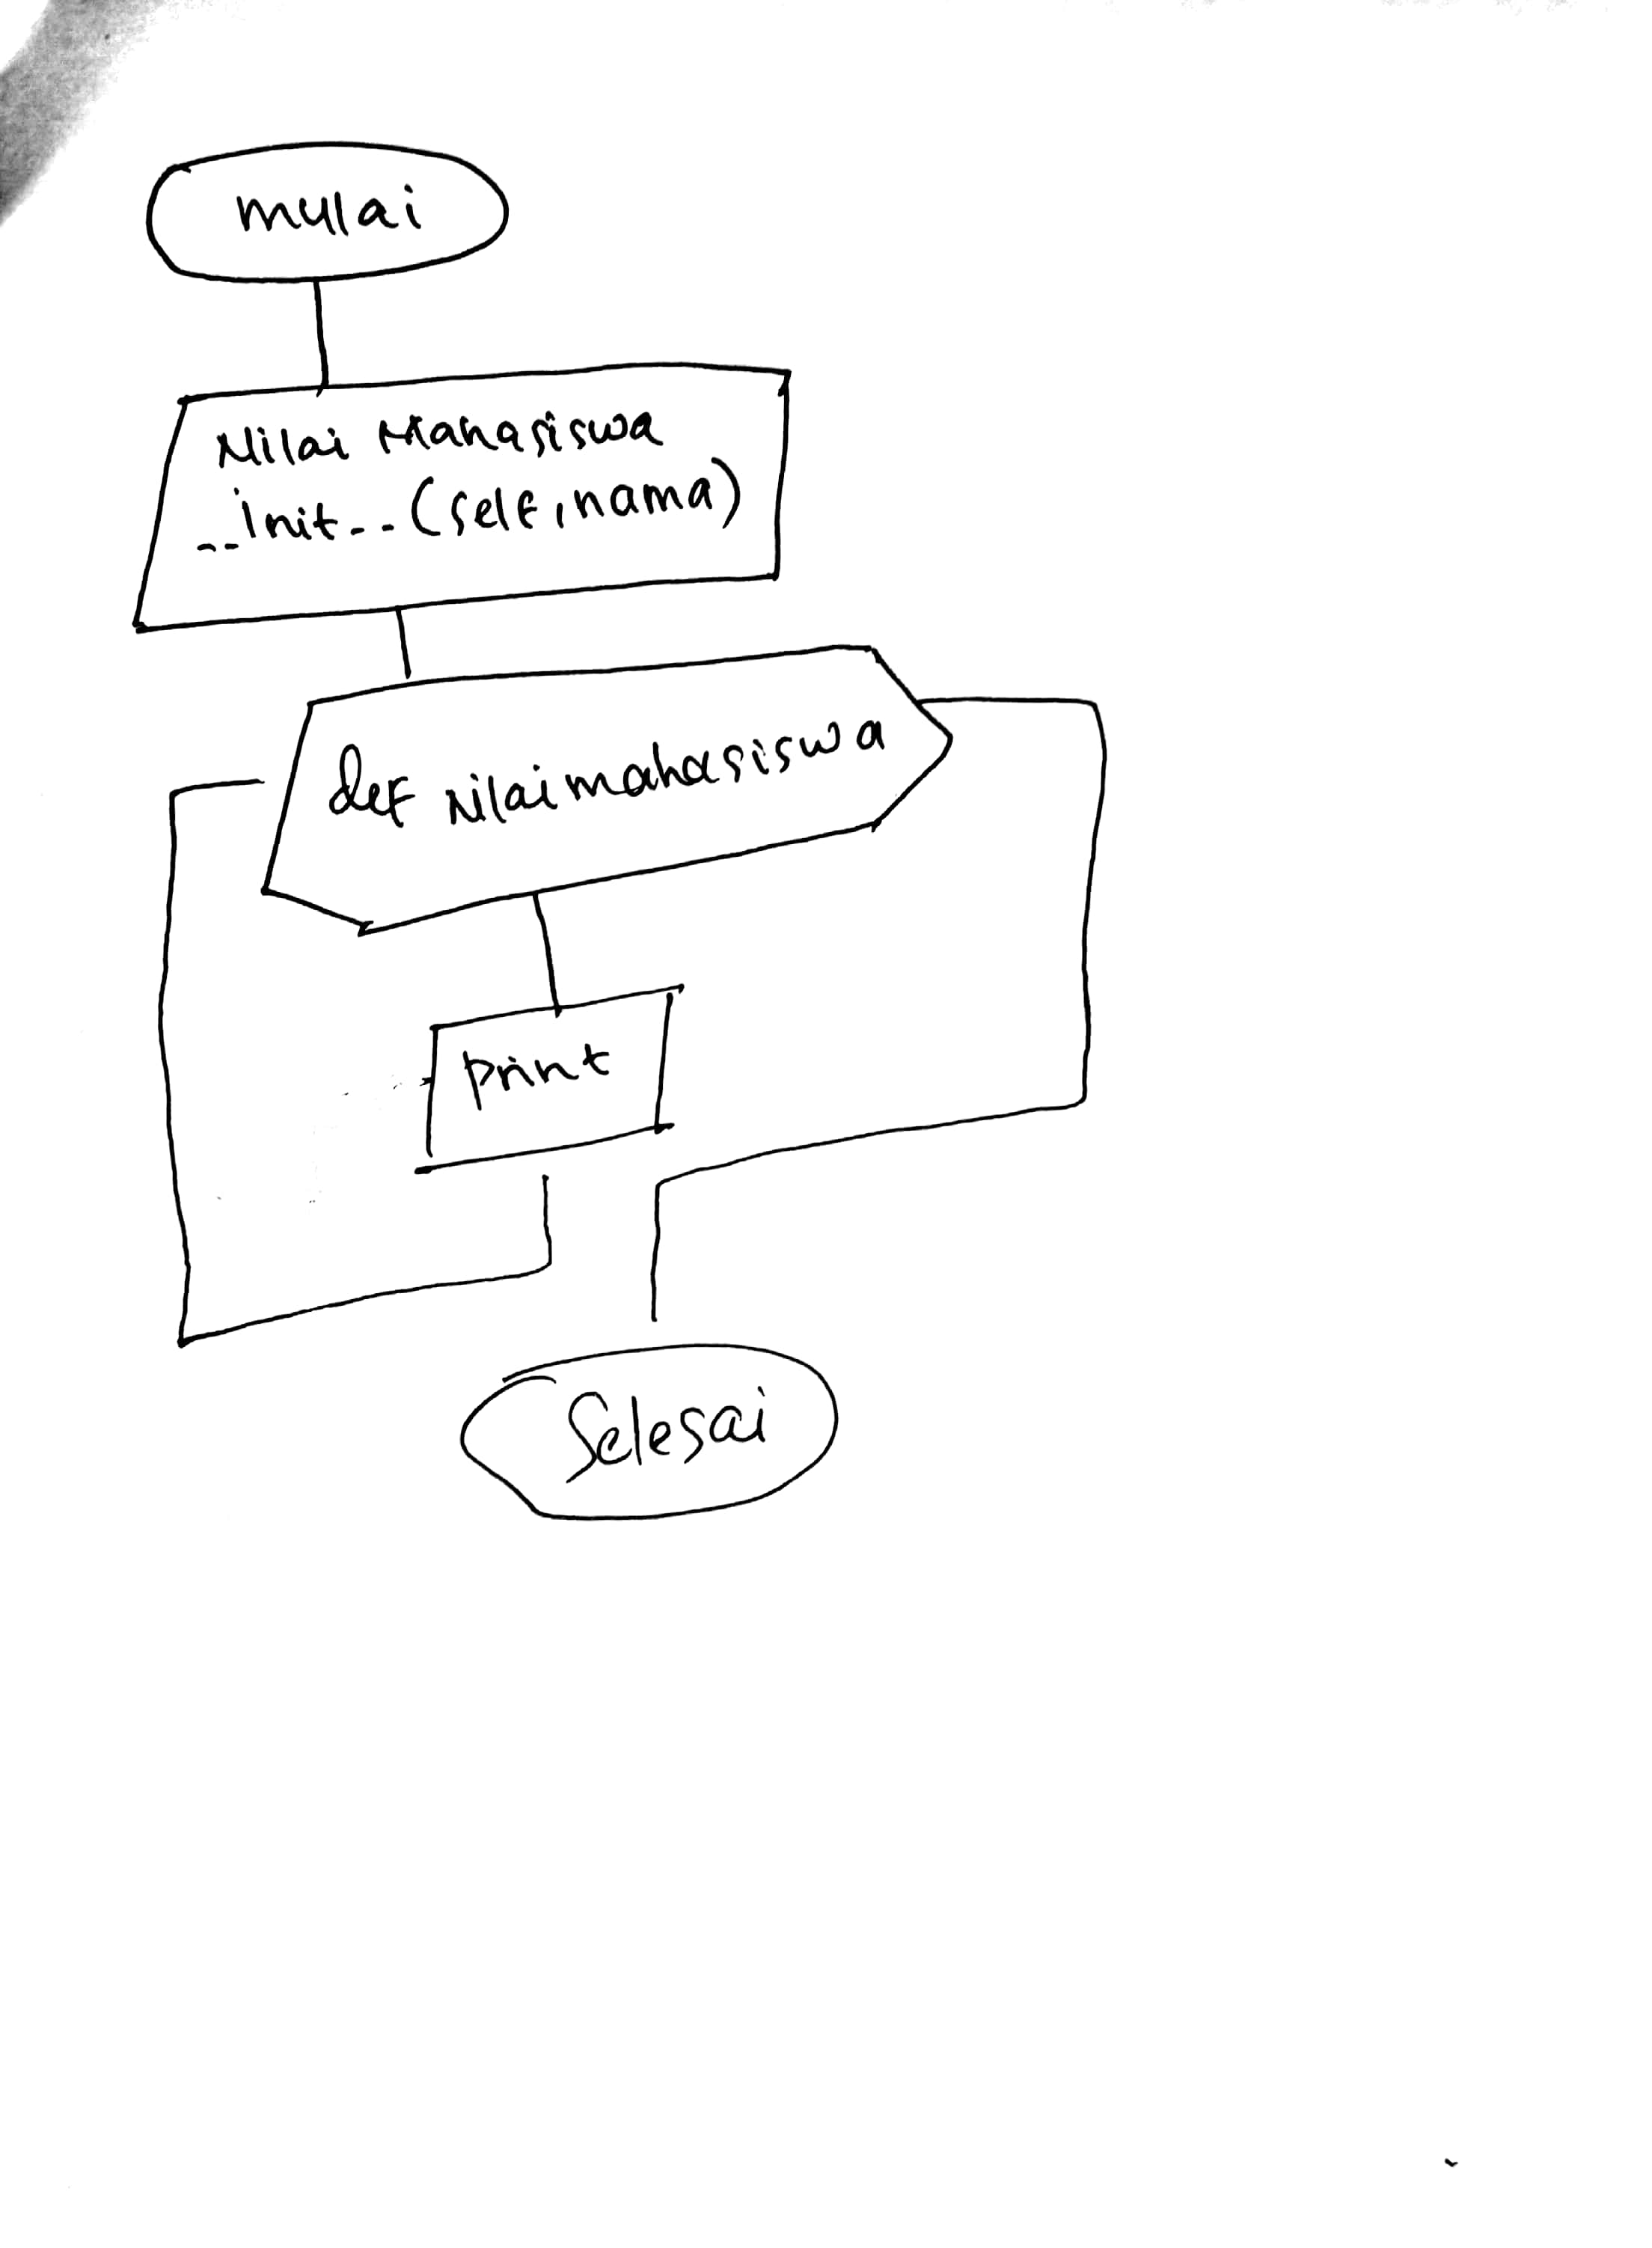 mulai
Nilai Mahasiswa
__init__(self, nama)
def Nilaimahasiswa
print
Selesai